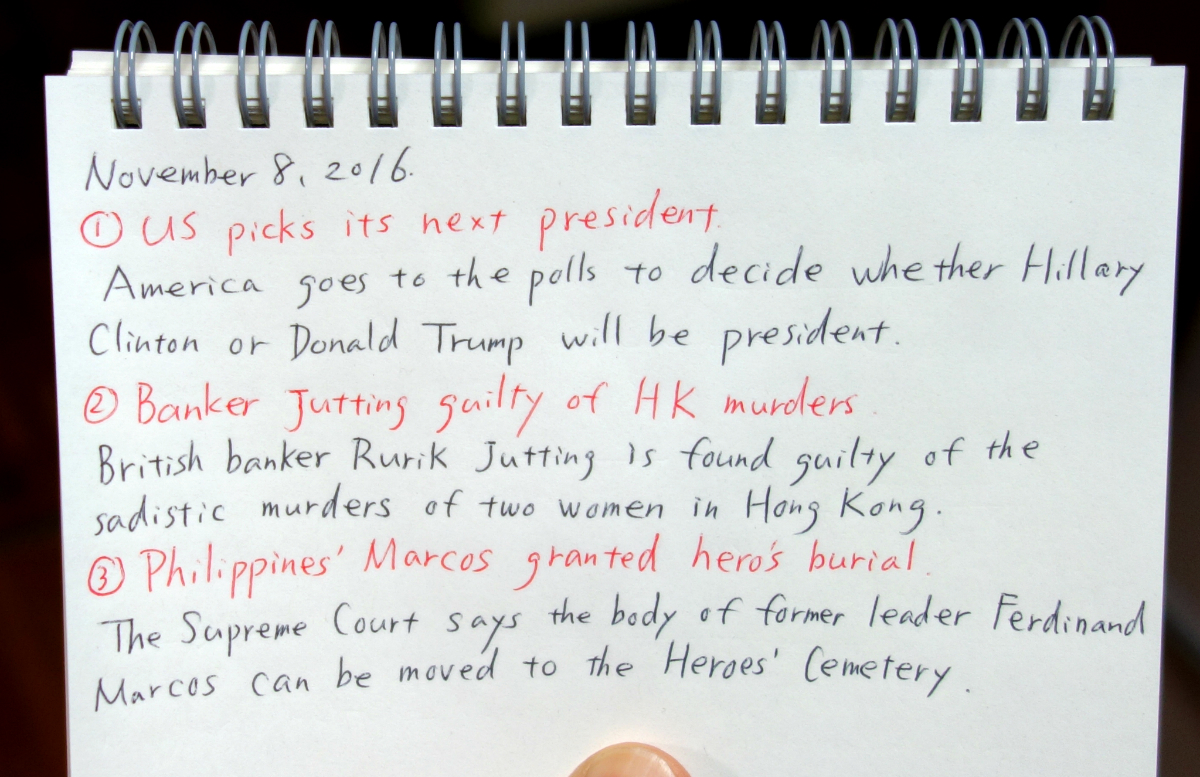 November 8, 2016.
① US picks its next president.
America goes to the polls to decide whether Hillary
Clinton or Donald Trump will be president.
② Banker Jutting guilty of HK murders.
British banker Rurik Jutting is found guilty of the
sadistic murders of two women in Hong Kong.
③ Philippines' Marcos granted hero's burial.
The Supreme Court says the body of former leader Ferdinand
Marcos can be moved to the Heroes' Cemetery.